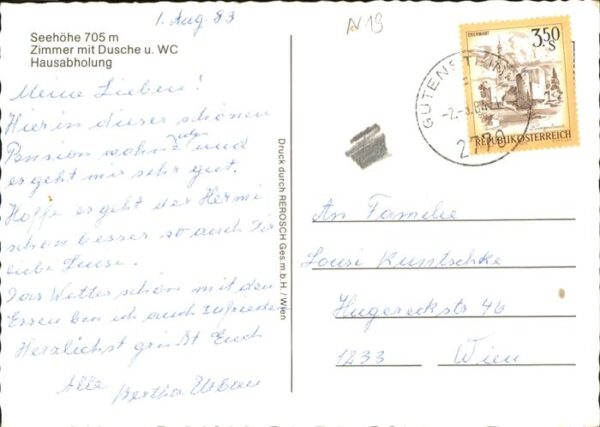 1. Aug 83
AV19
Seehöhe 705 m
Zimmer mit Dusche u. WC
Hausabholung
Meine Lieben!
Hier in dieser schönen
Pension wohne und
es geht mir sehr gut.
Hoffe es geht der Hermi
schon besser so auch Dir
liebe Luise.
Das Wetter schön mit dem
Essen bin ich auch zufrieden
Herzlichst grüßt Euch
Alle Bertha Urban
Druck durch REROSCH Ges.m.b.H./Wien
3.50
S
REPUBLIK ÖSTERREICH
GUTENSTEIN
2770
An Familie
Louisi Kuntschke
Hugereckstr 46
1233 Wien